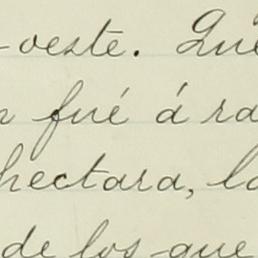 -oeste. Que
fué á ra
hectara, lo
de los que